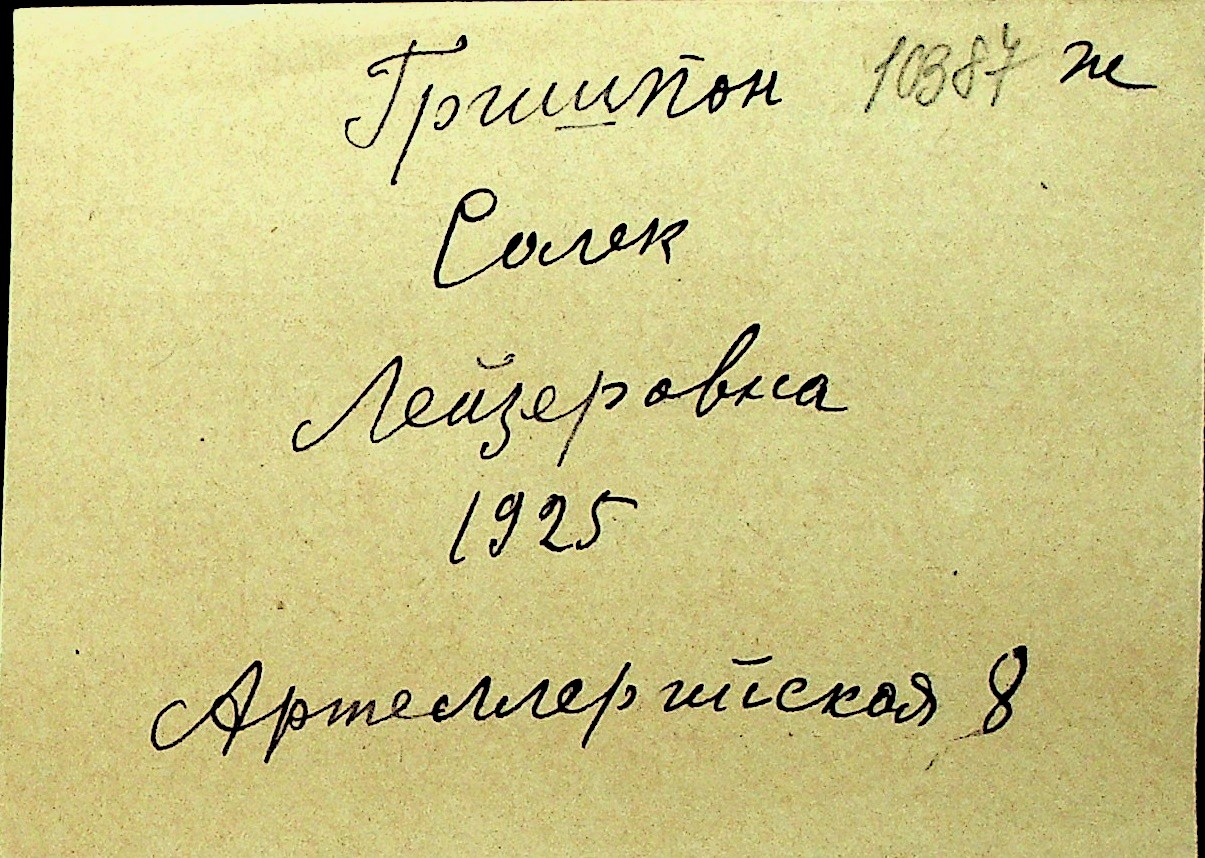 Гришпон 10387 ж
Солек
Лейзеровна
1925
Артеллерийская 8